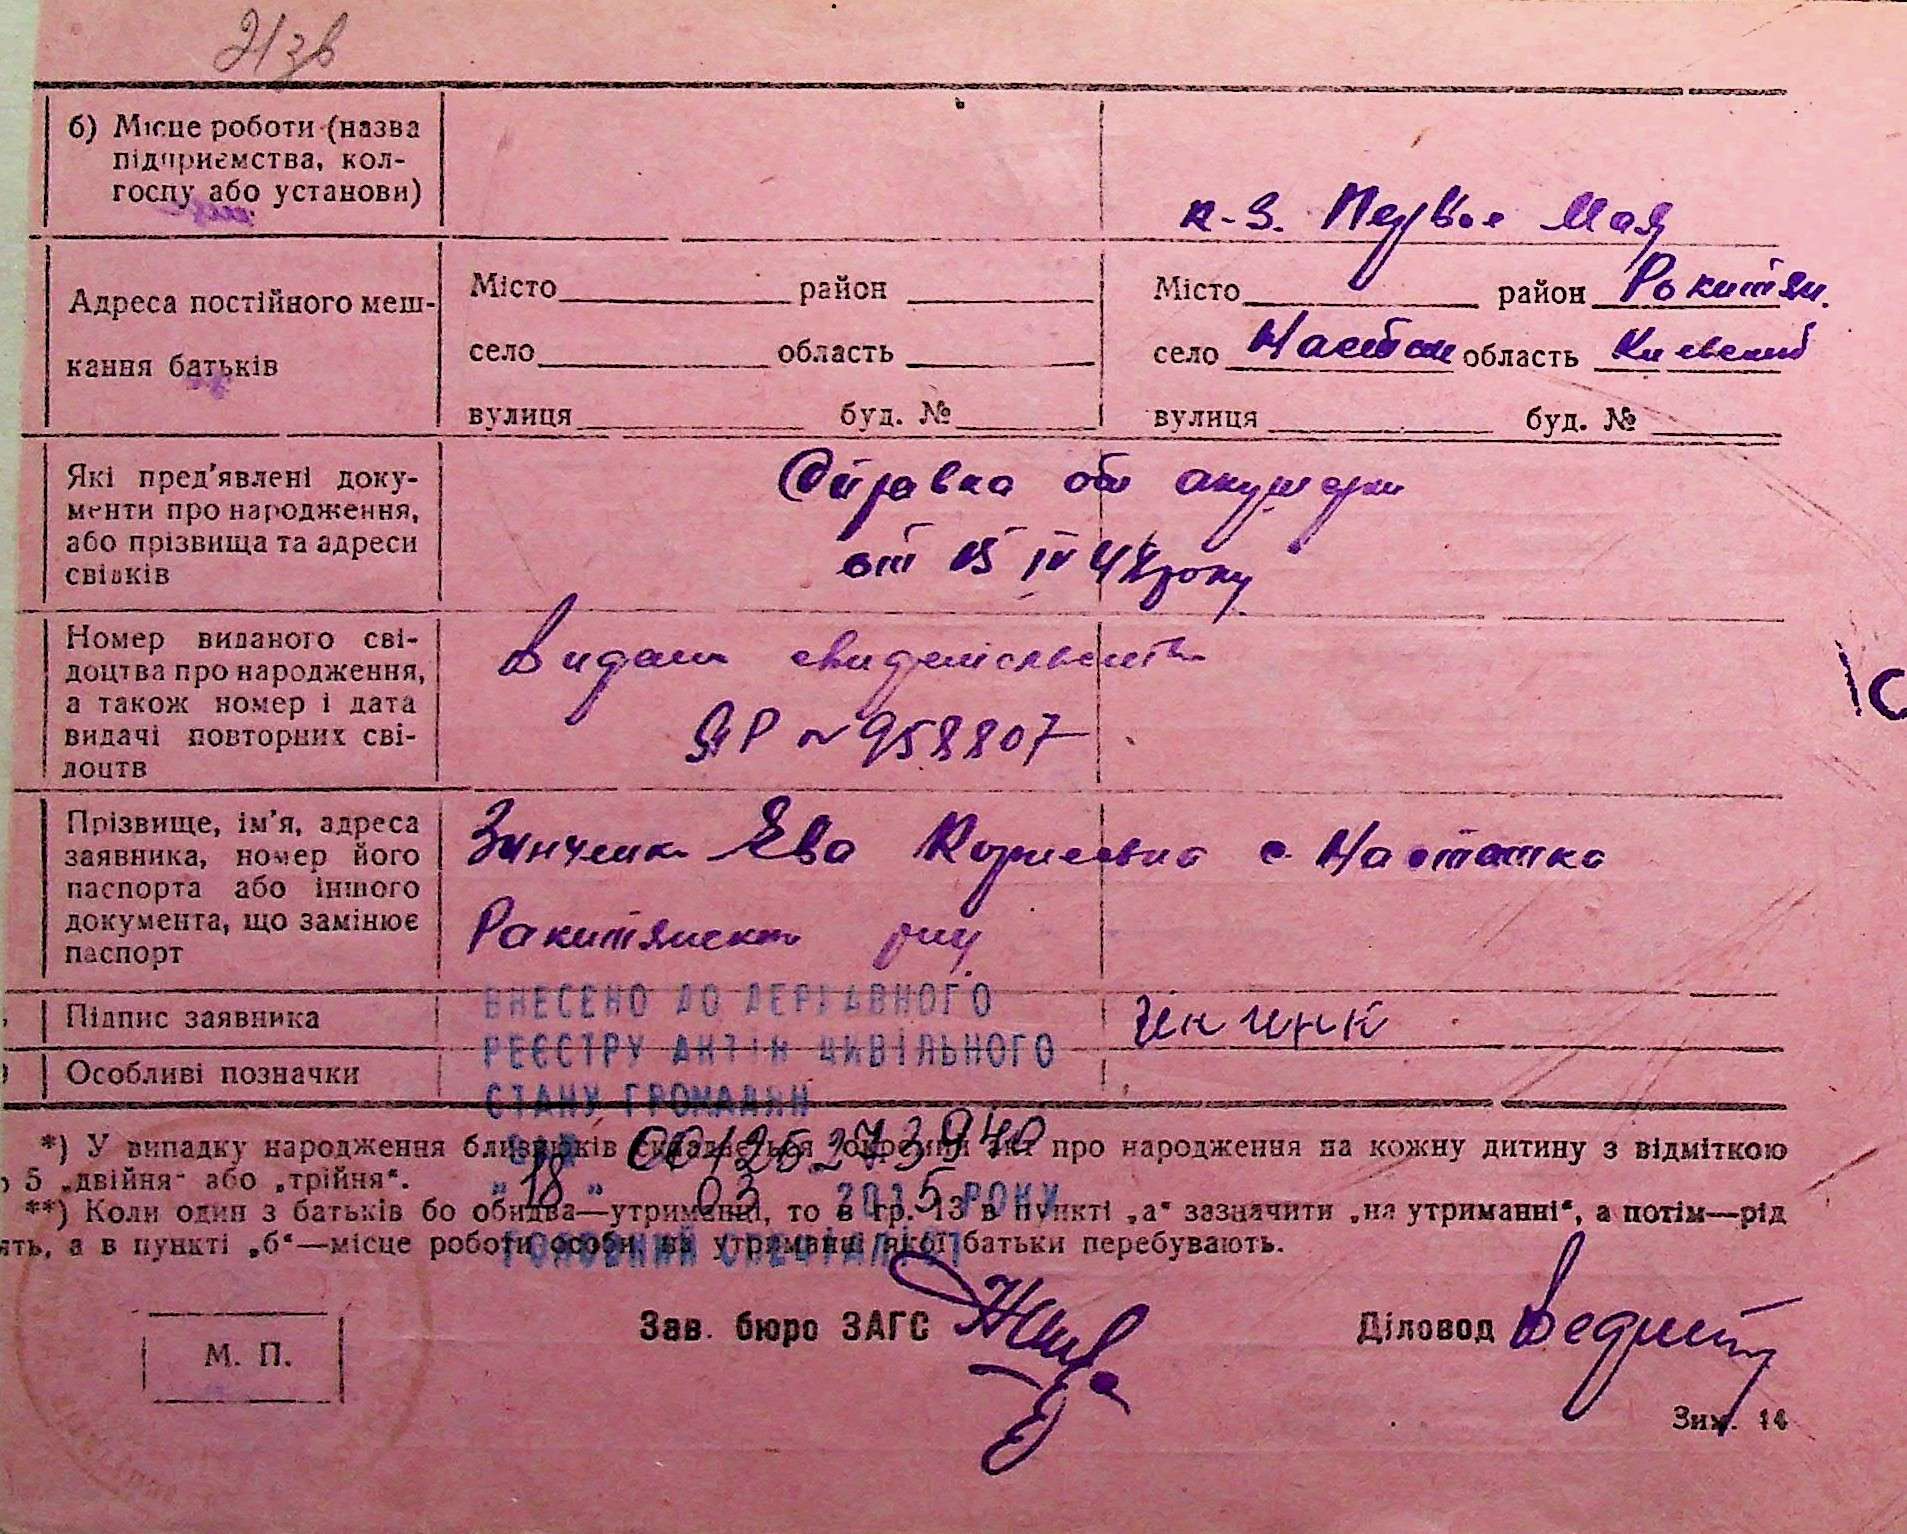 21зв
б) Місце роботи (назва
підприємства, кол-
госпу або установи)
к-з. Первое Мая
Адреса постійного меш-
кання батьків
Місто район
село область
вулиця буд. №
Місто район Рокитян.
село область Киевский
вулиця буд. №
Які пред'явлені доку-
менти про народження,
або прізвища та адреси
свідків
Справка от акушерки
от 15 IV 44 року
Номер виданого сві-
доцтва про народження,
а також номер і дата
видачі повторних сві-
доцтв
ЯР № 958807
Прізвище, ім'я, адреса
заявника, номер його
паспорта або іншого
документа, що замінює
паспорт
Ева Корнеевна с. Насташка
Ракитянск
Підпис заявника
Особливі позначки
ВНЕСЕНО ДО ДЕРЖАВНОГО
РЕЄСТРУ АКТІВ ЦИВІЛЬНОГО
СТАНУ ГРОМАДЯН
"18" 03 2015 РОКУ
ГОЛОВНИЙ СПЕЦІАЛІСТ
*) У випадку народження близнюків складається окремий акт про народження на кожну дитину з відміткою
5 „двійня" або „трійня".
**) Коли один з батьків бо обидва—утриманці, то в гр. 13 в пункті „а" зазначити „на утриманні", а потім—рід
ять, а в пункті „б"—місце роботи особи, на утриманні якої батьки перебувають.
Зав. бюро ЗАГС
Діловод
М. П.
Зим. 14